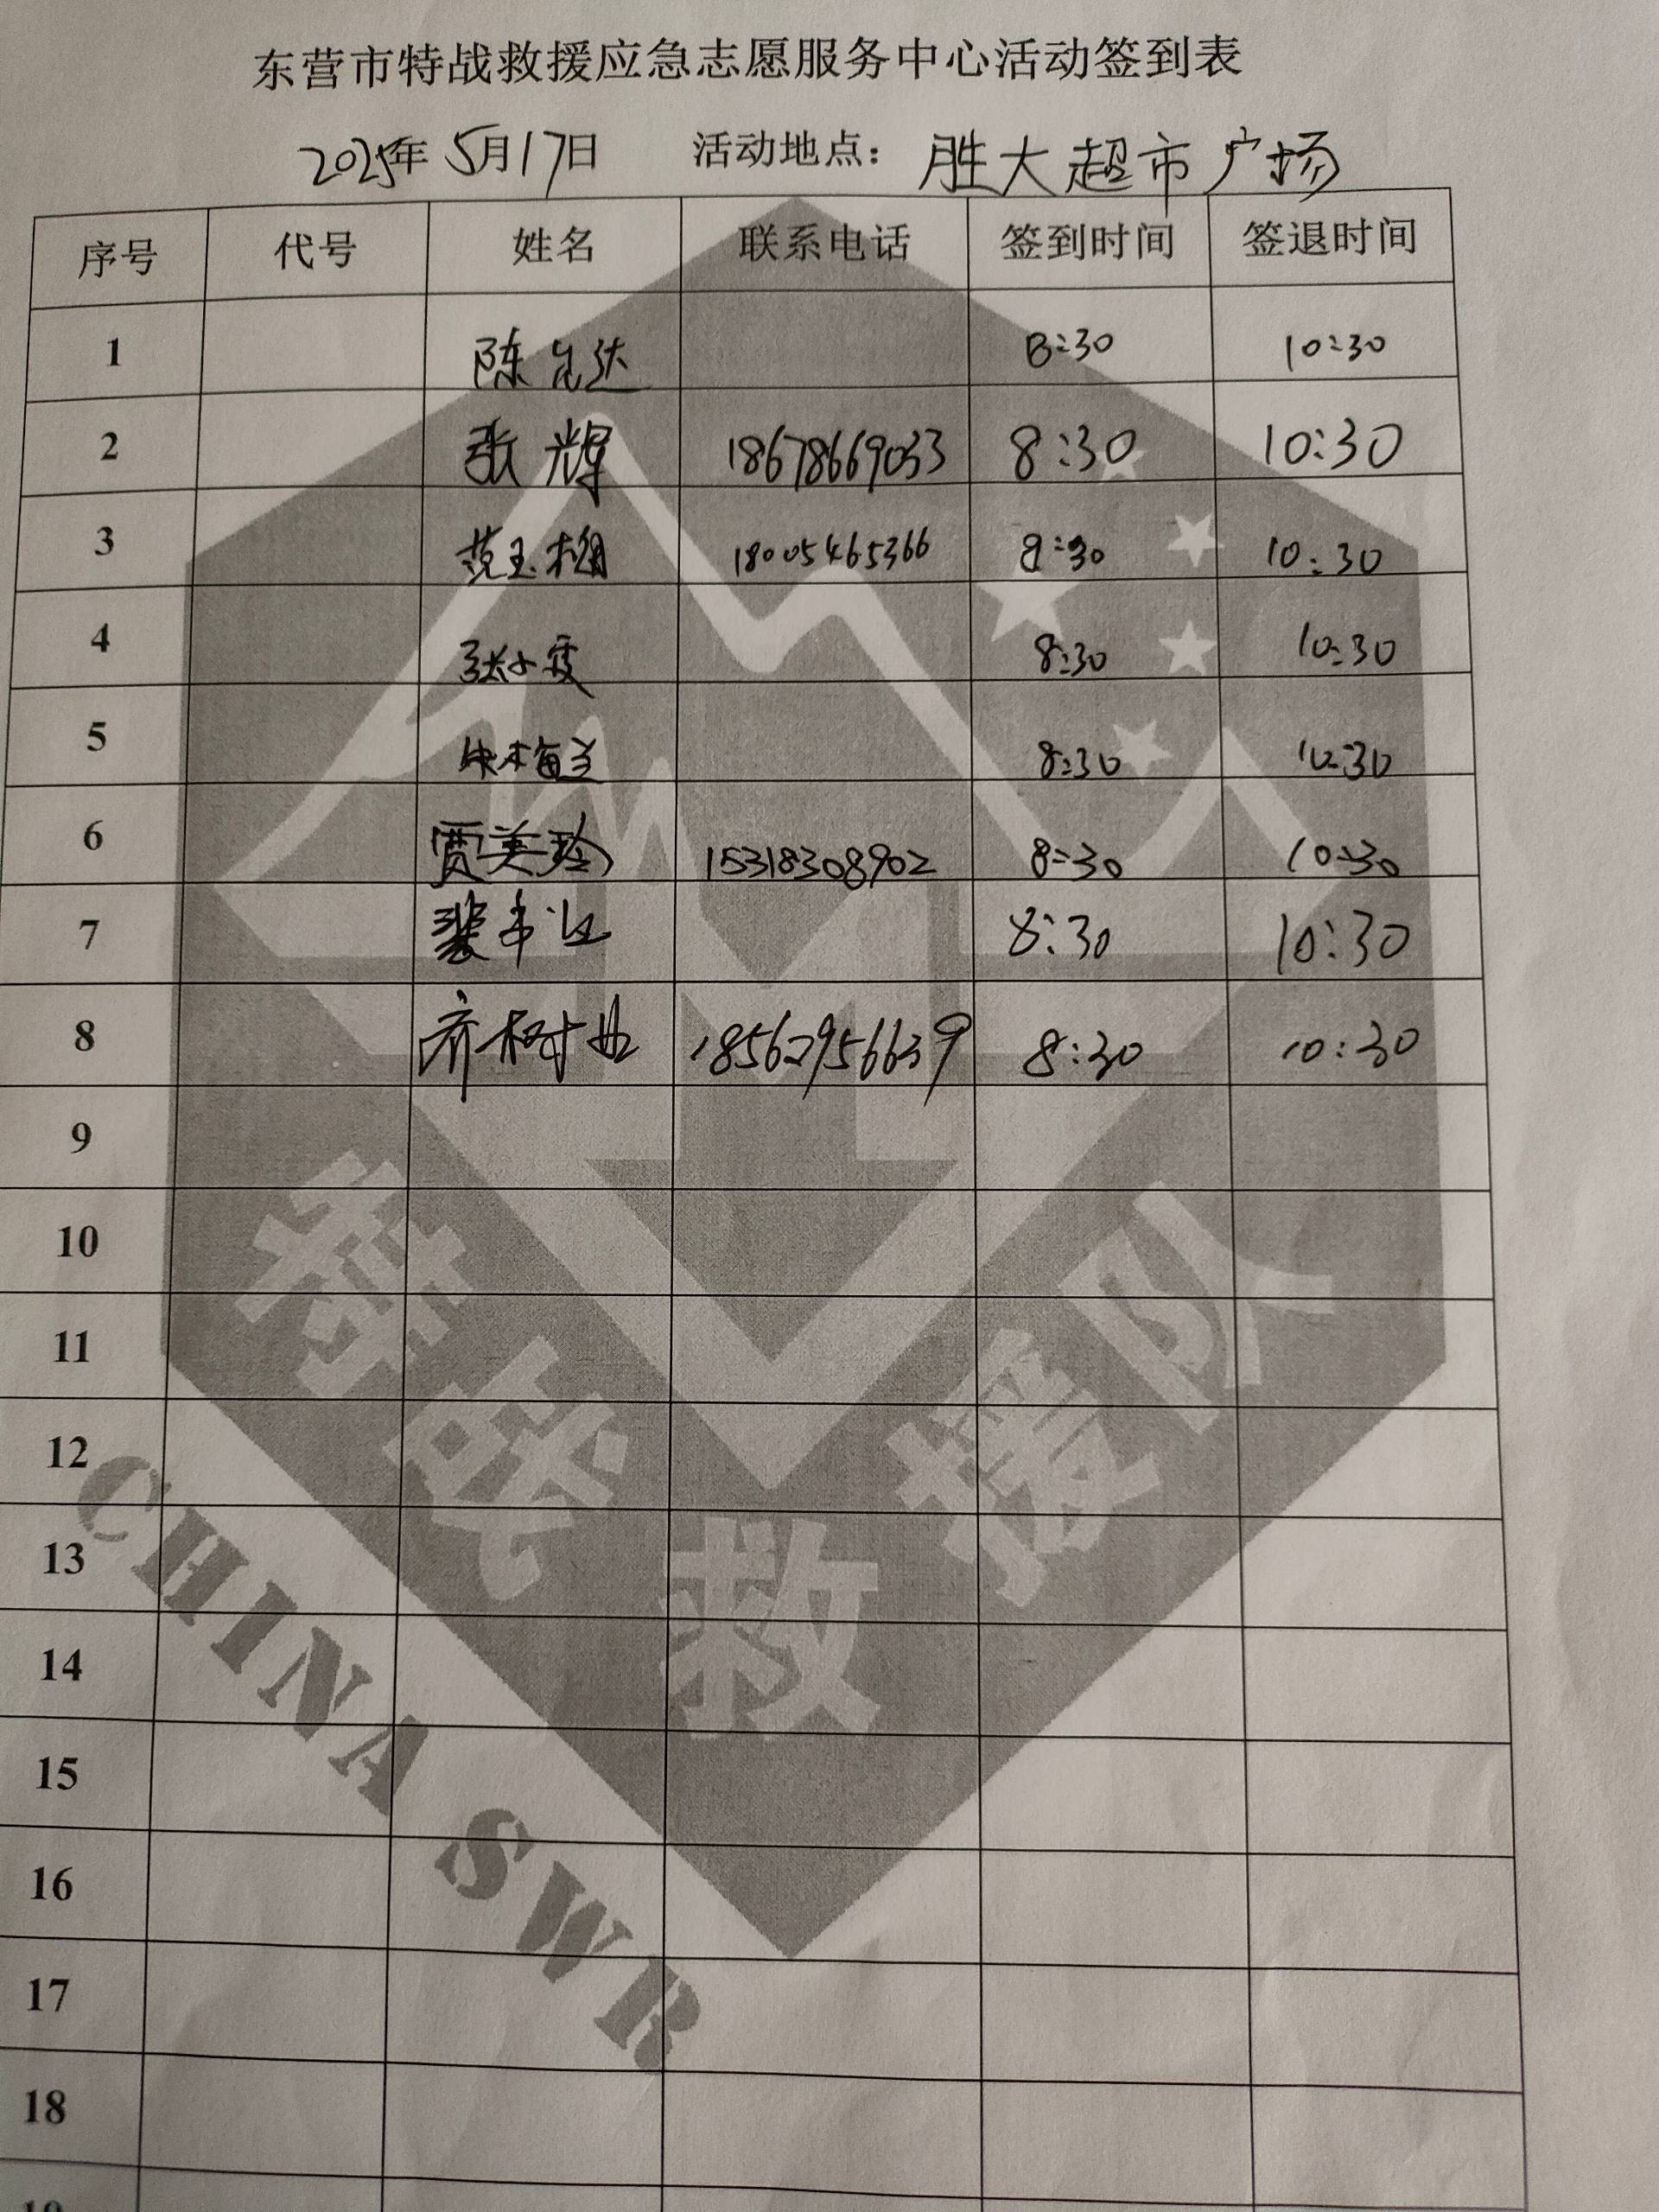 东营市特战救援应急志愿服务中心活动签到表
2025年5月17日 活动地点：胜大超市广场
序号 代号 姓名 联系电话 签到时间 签退时间
1 陈 达 8:30 10:30
2 张辉 18678669033 8:30 10:30
3 范玉梅 18005465366 8:30 10:30
4 张小霞 8:30 10:30
5 8:30 10:30
6 贾美玲 15318308902 8:30 10:30
7 裴 8:30 10:30
8 齐树 18562956639 8:30 10:30
9
10
11
12
13
14
15
16
17
18
特战救援队
CHINA SWR